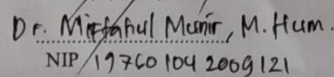 Dr. Miftahul Munir, M. Hum.
NIP 19760104 2009121